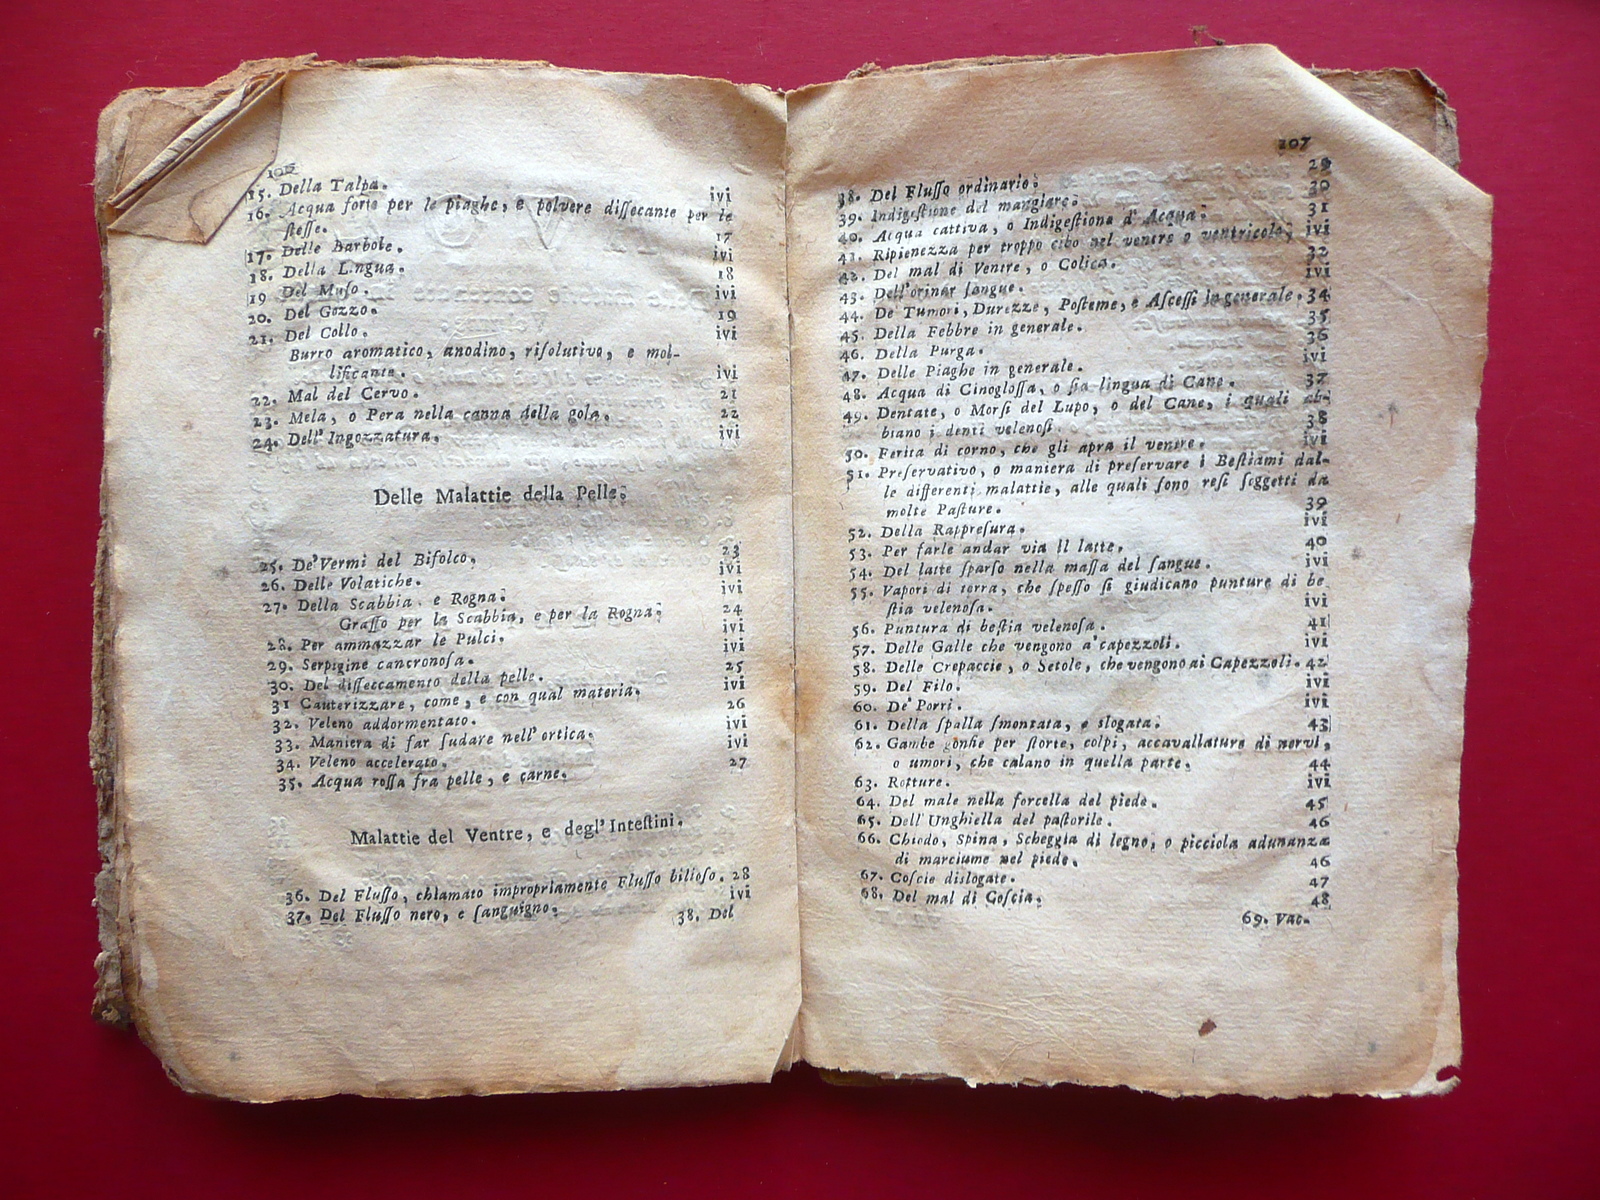 106
15. Della Talpa. ivi
16. Acqua forte per le piaghe, e polvere disseccante per le
stesse. 17
17. Delle Barbole. ivi
18. Della Lingua. 18
19 Del Muso. ivi
20. Del Gozzo. 19
21. Del Collo. ivi
Burro aromatico, anodino, risolutivo, e mol-
lificante. ivi
22. Mal del Cervo. 21
23. Mela, o Pera nella canna della gola. 22
24. Dell'Ingozzatura. ivi
Delle Malattie della Pelle.
25. De' Vermi del Bifolco. 23
26. Delle Volatiche. ivi
27. Della Scabbia, e Rogna. ivi
Grasso per la Scabbia, e per la Rogna. 24
28. Per ammazzar le Pulci. ivi
29. Serpigine cancronosa. ivi
30. Del disseccamento della pelle. 25
31 Cauterizzare, come, e con qual materia. ivi
32. Veleno addormentato. 26
33. Maniera di far sudare nell'ortica. ivi
34. Veleno accelerato. ivi
35. Acqua rossa fra pelle, e carne. 27
Malattie del Ventre, e degl'Intestini.
36. Del Flusso, chiamato impropriamente Flusso bilioso. 28
37. Del Flusso nero, e sanguigno. ivi
38. Del
107
38. Del Flusso ordinario. 29
39. Indigestione del mangiare. 30
40. Acqua cattiva, o Indigestione d'Acqua. 31
41. Ripienezza per troppo cibo nel ventre o ventricolo. ivi
42. Del mal di Ventre, o Colica. 32
43. Dell'orinar sangue. ivi
44. De' Tumori, Durezze, Posteme, e Ascessi in generale. 34
45. Della Febbre in generale. 35
46. Della Purga. 36
47. Delle Piaghe in generale. ivi
48. Acqua di Cinoglossa, o sia lingua di Cane. 37
49. Dentate, o Morsi del Lupo, o del Cane, i quali ab-
biano i denti velenosi. 38
50. Ferita di corno, che gli apra il ventre. ivi
51. Preservativo, o maniera di preservare i Bestiami dal-
le differenti malattie, alle quali sono resi soggetti da
molte Pasture. 39
52. Della Rappresura. ivi
53. Per farle andar via il latte. 40
54. Del latte sparso nella massa del sangue. ivi
55. Vapori di terra, che spesso si giudicano punture di be
stia velenosa. ivi
56. Puntura di bestia velenosa. 41
57. Delle Galle che vengono a' capezzoli. ivi
58. Delle Crepaccie, o Setole, che vengono ai Capezzoli. 42
59. Del Filo. ivi
60. De' Porri. ivi
61. Della spalla smontata, o slogata. 43
62. Gambe gonfie per storte, colpi, accavallature di nervi,
o umori, che calano in quella parte. 44
63. Rotture. ivi
64. Del male nella forcella del piede. 45
65. Dell'Unghiella del pastorile. 46
66. Chiodo, Spina, Scheggia di legno, o picciola adunanza
di marciume nel piede. 46
67. Coscie dislogate. 47
68. Del mal di Coscia. 48
69. Vac-